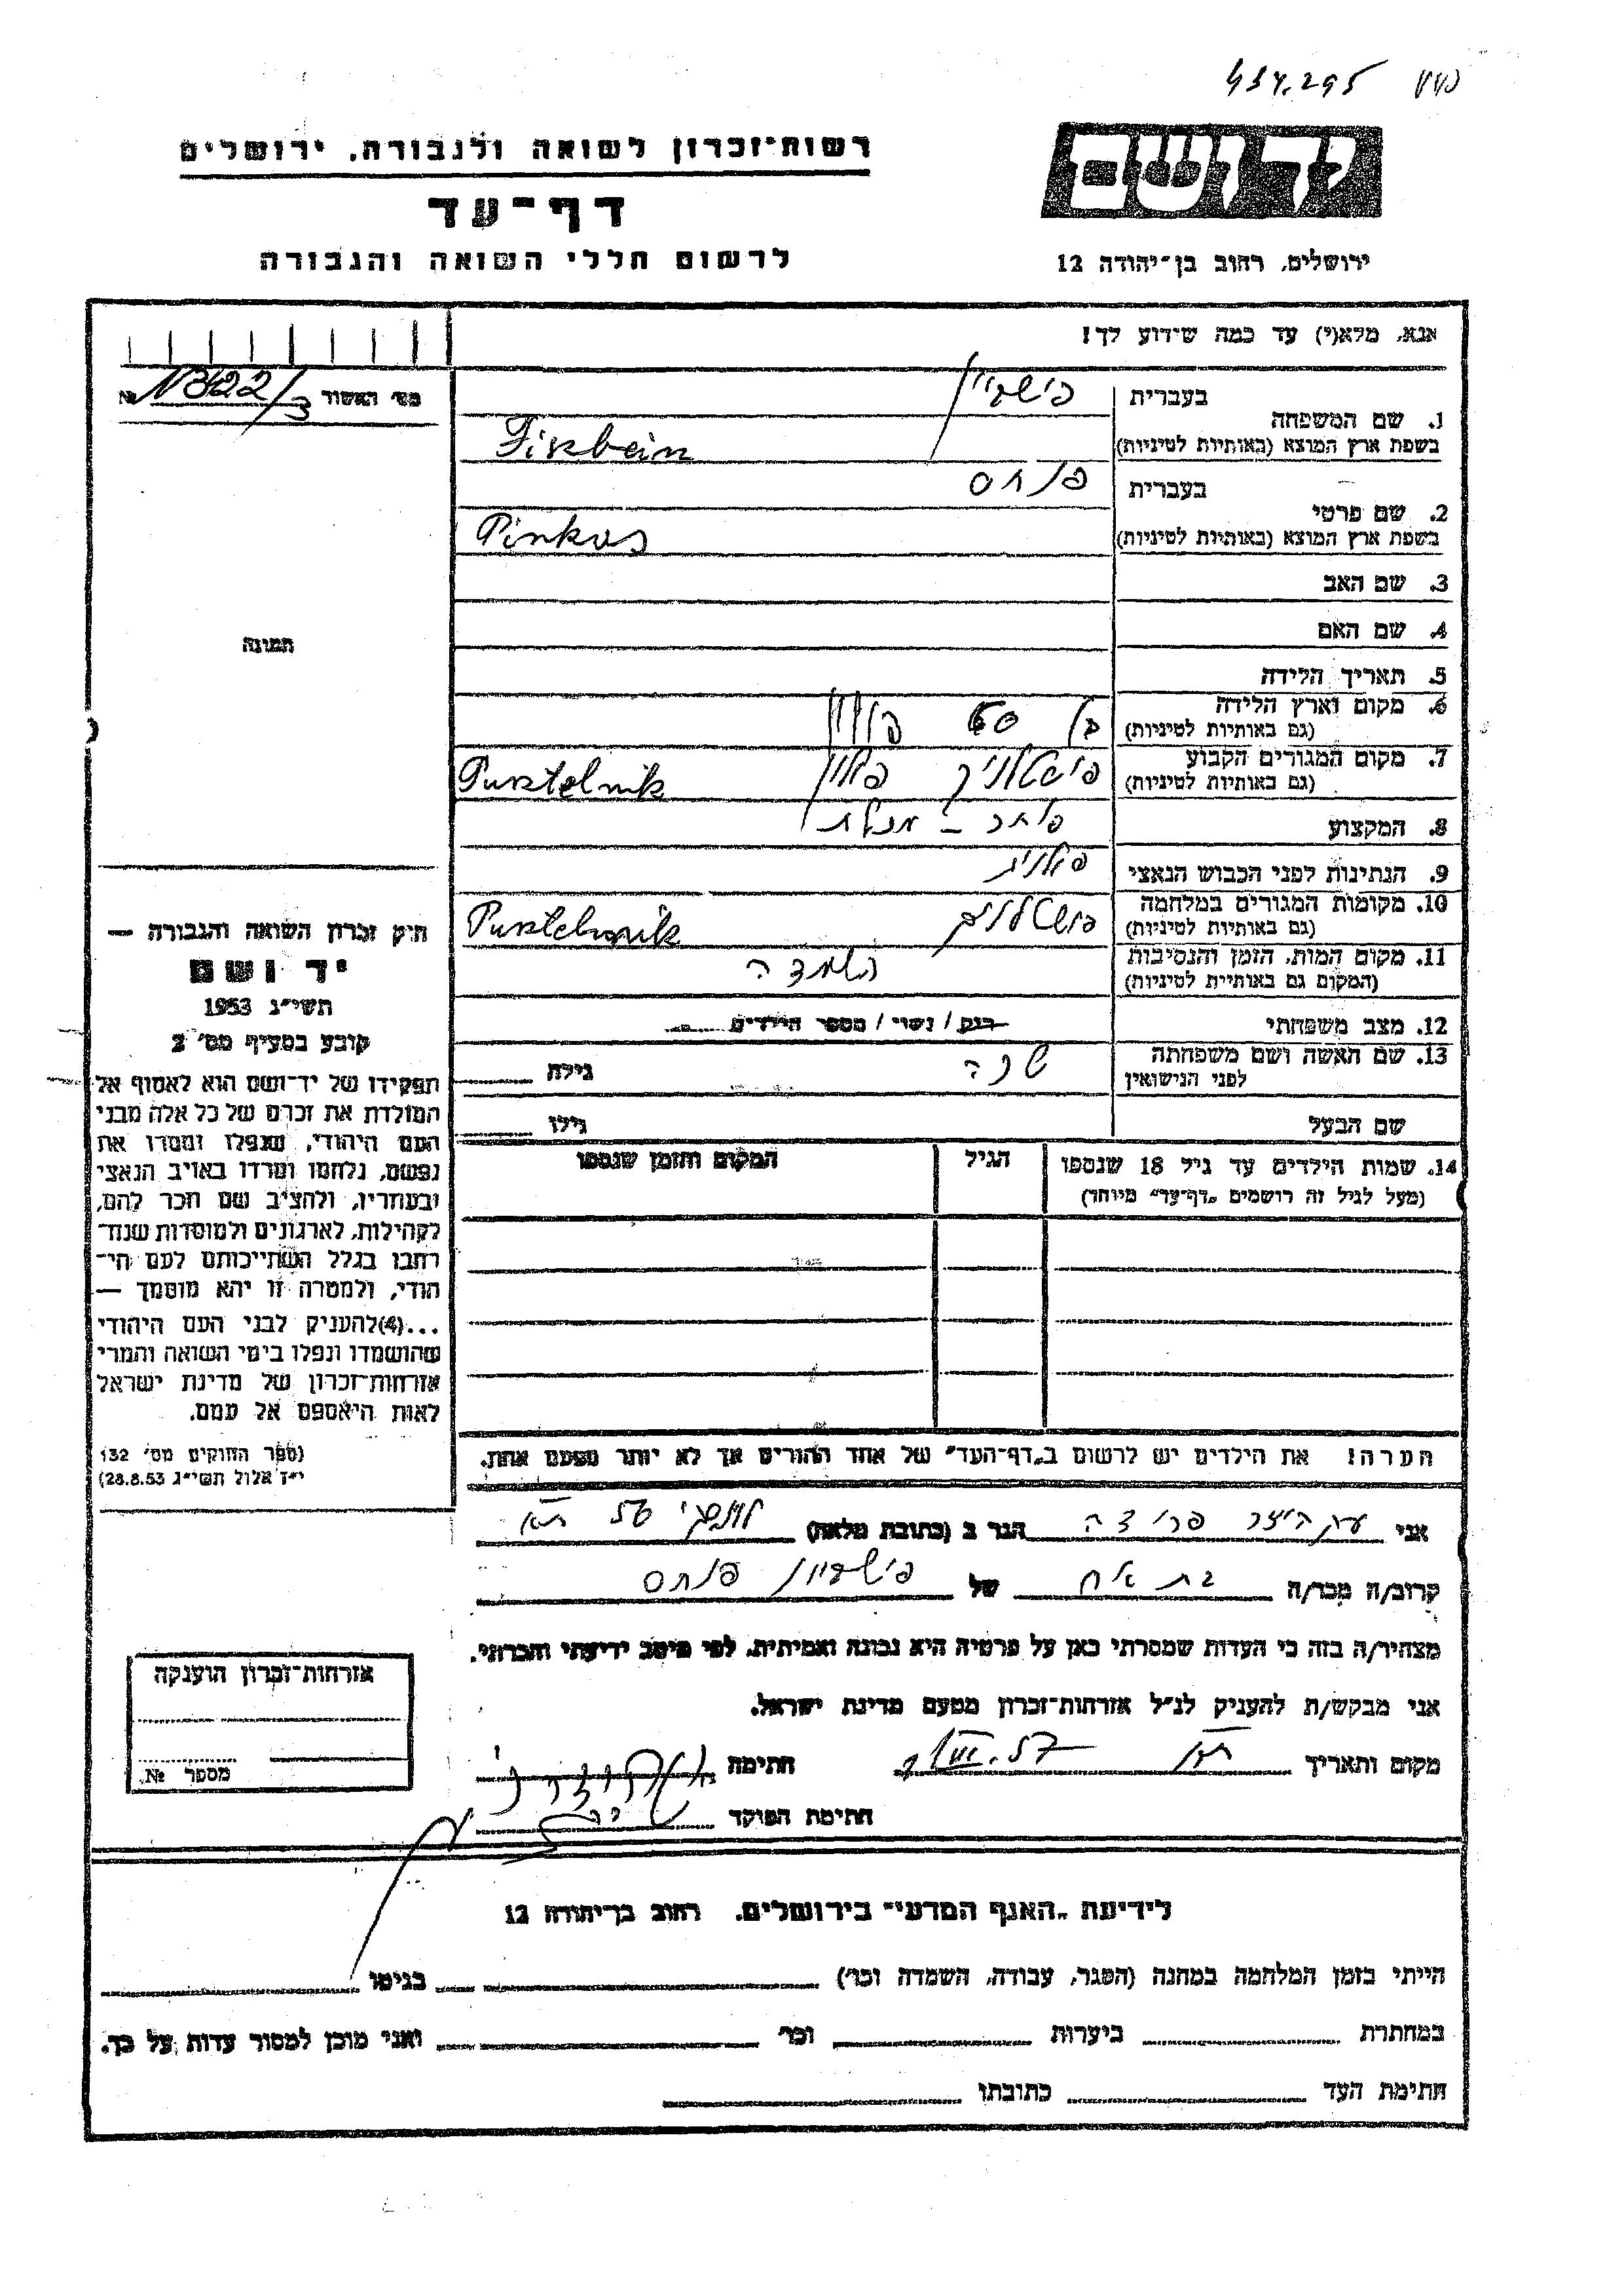 434.295
רשות־זכרון לשואה ולגבורה, ירושלים
יד ושם
דף־עד
לרשום חללי השואה והגבורה
ירושלים, רחוב בן־יהודה 12
אנא, מלא(י) עד כמה שידוע לך!
מס׳ האשור № N322/3
1. שם המשפחה בעברית פישביין
בשפת ארץ המוצא (באותיות לטיניות) Fiszbein
2. שם פרטי בעברית פנחס
בשפת ארץ המוצא (באותיות לטיניות) Pinkus
3. שם האב
4. שם האם
תמונה
5. תאריך הלידה
6. מקום וארץ הלידה בן 60 פולין
(גם באותיות לטיניות)
7. מקום המגורים הקבוע פולין Pustelnik
(גם באותיות לטיניות)
8. המקצוע
9. הנתינות לפני הכבוש הנאצי פולנית
10. מקומות המגורים במלחמה Pustelnik
(גם באותיות לטיניות)
11. מקום המות, הזמן והנסיבות השמדה
(המקום גם באותיות לטיניות)
12. מצב משפחתי רווק / נשוי / מספר הילדים
13. שם האשה ושם משפחתה גילה
לפני הנישואין
שם הבעל גילו
14. שמות הילדים עד גיל 18 שנספו הגיל המקום והזמן שנספו
(מעל לגיל זה רושמים „דף־עד״ מיוחד)
הערה! את הילדים יש לרשום ב„דף־העד״ של אחד ההורים אך לא יותר מפעם אחת.
חוק זכרון השואה והגבורה —
יד ושם
תשי״ג 1953
קובע בסעיף מס׳ 2
תפקידו של יד־ושם הוא לאסוף אל
המולדת את זכרם של כל אלה מבני
העם היהודי, שנפלו ומסרו את
נפשם, נלחמו ומרדו באויב הנאצי
ובעוזריו, ולהציב שם וזכר להם,
לקהילות, לארגונים ולמוסדות שנח־
רבו בגלל השתייכותם לעם הי־
הודי, ולמטרה זו יהא מוסמך —
...(4)להעניק לבני העם היהודי
שהושמדו ונפלו בימי השואה והמרי
אזרחות־זכרון של מדינת ישראל
לאות היאספם אל עמם.
(ספר החוקים מס׳ 132
י״ז אלול תשי״ג 28.8.53)
אני הגר ב (כתובת מלאה)
קרוב/ה מכר/ה בת אח של פישביין פנחס
מצהיר/ה בזה כי העדות שמסרתי כאן על פרטיה היא נכונה ואמיתית, לפי מיטב ידיעתי והכרתי.
אני מבקש/ת להעניק לנ״ל אזרחות־זכרון מטעם מדינת ישראל.
מקום ותאריך חתימה
חתימת הפוקד
אזרחות־זכרון הוענקה
מספר №
לידיעת „האגף המדעי״ בירושלים, רחוב בן־יהודה 12
הייתי בזמן המלחמה במחנה (הסגר, עבודה, השמדה וכו׳) בגיטו
במחתרת ביערות וכו׳ ואני מוכן למסור עדות על כך.
חתימת העד כתובתו